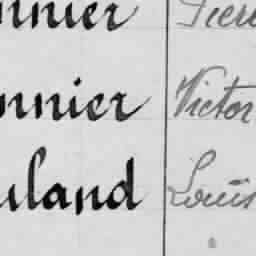 nnier Pierr
nnier Victor
uland Louis